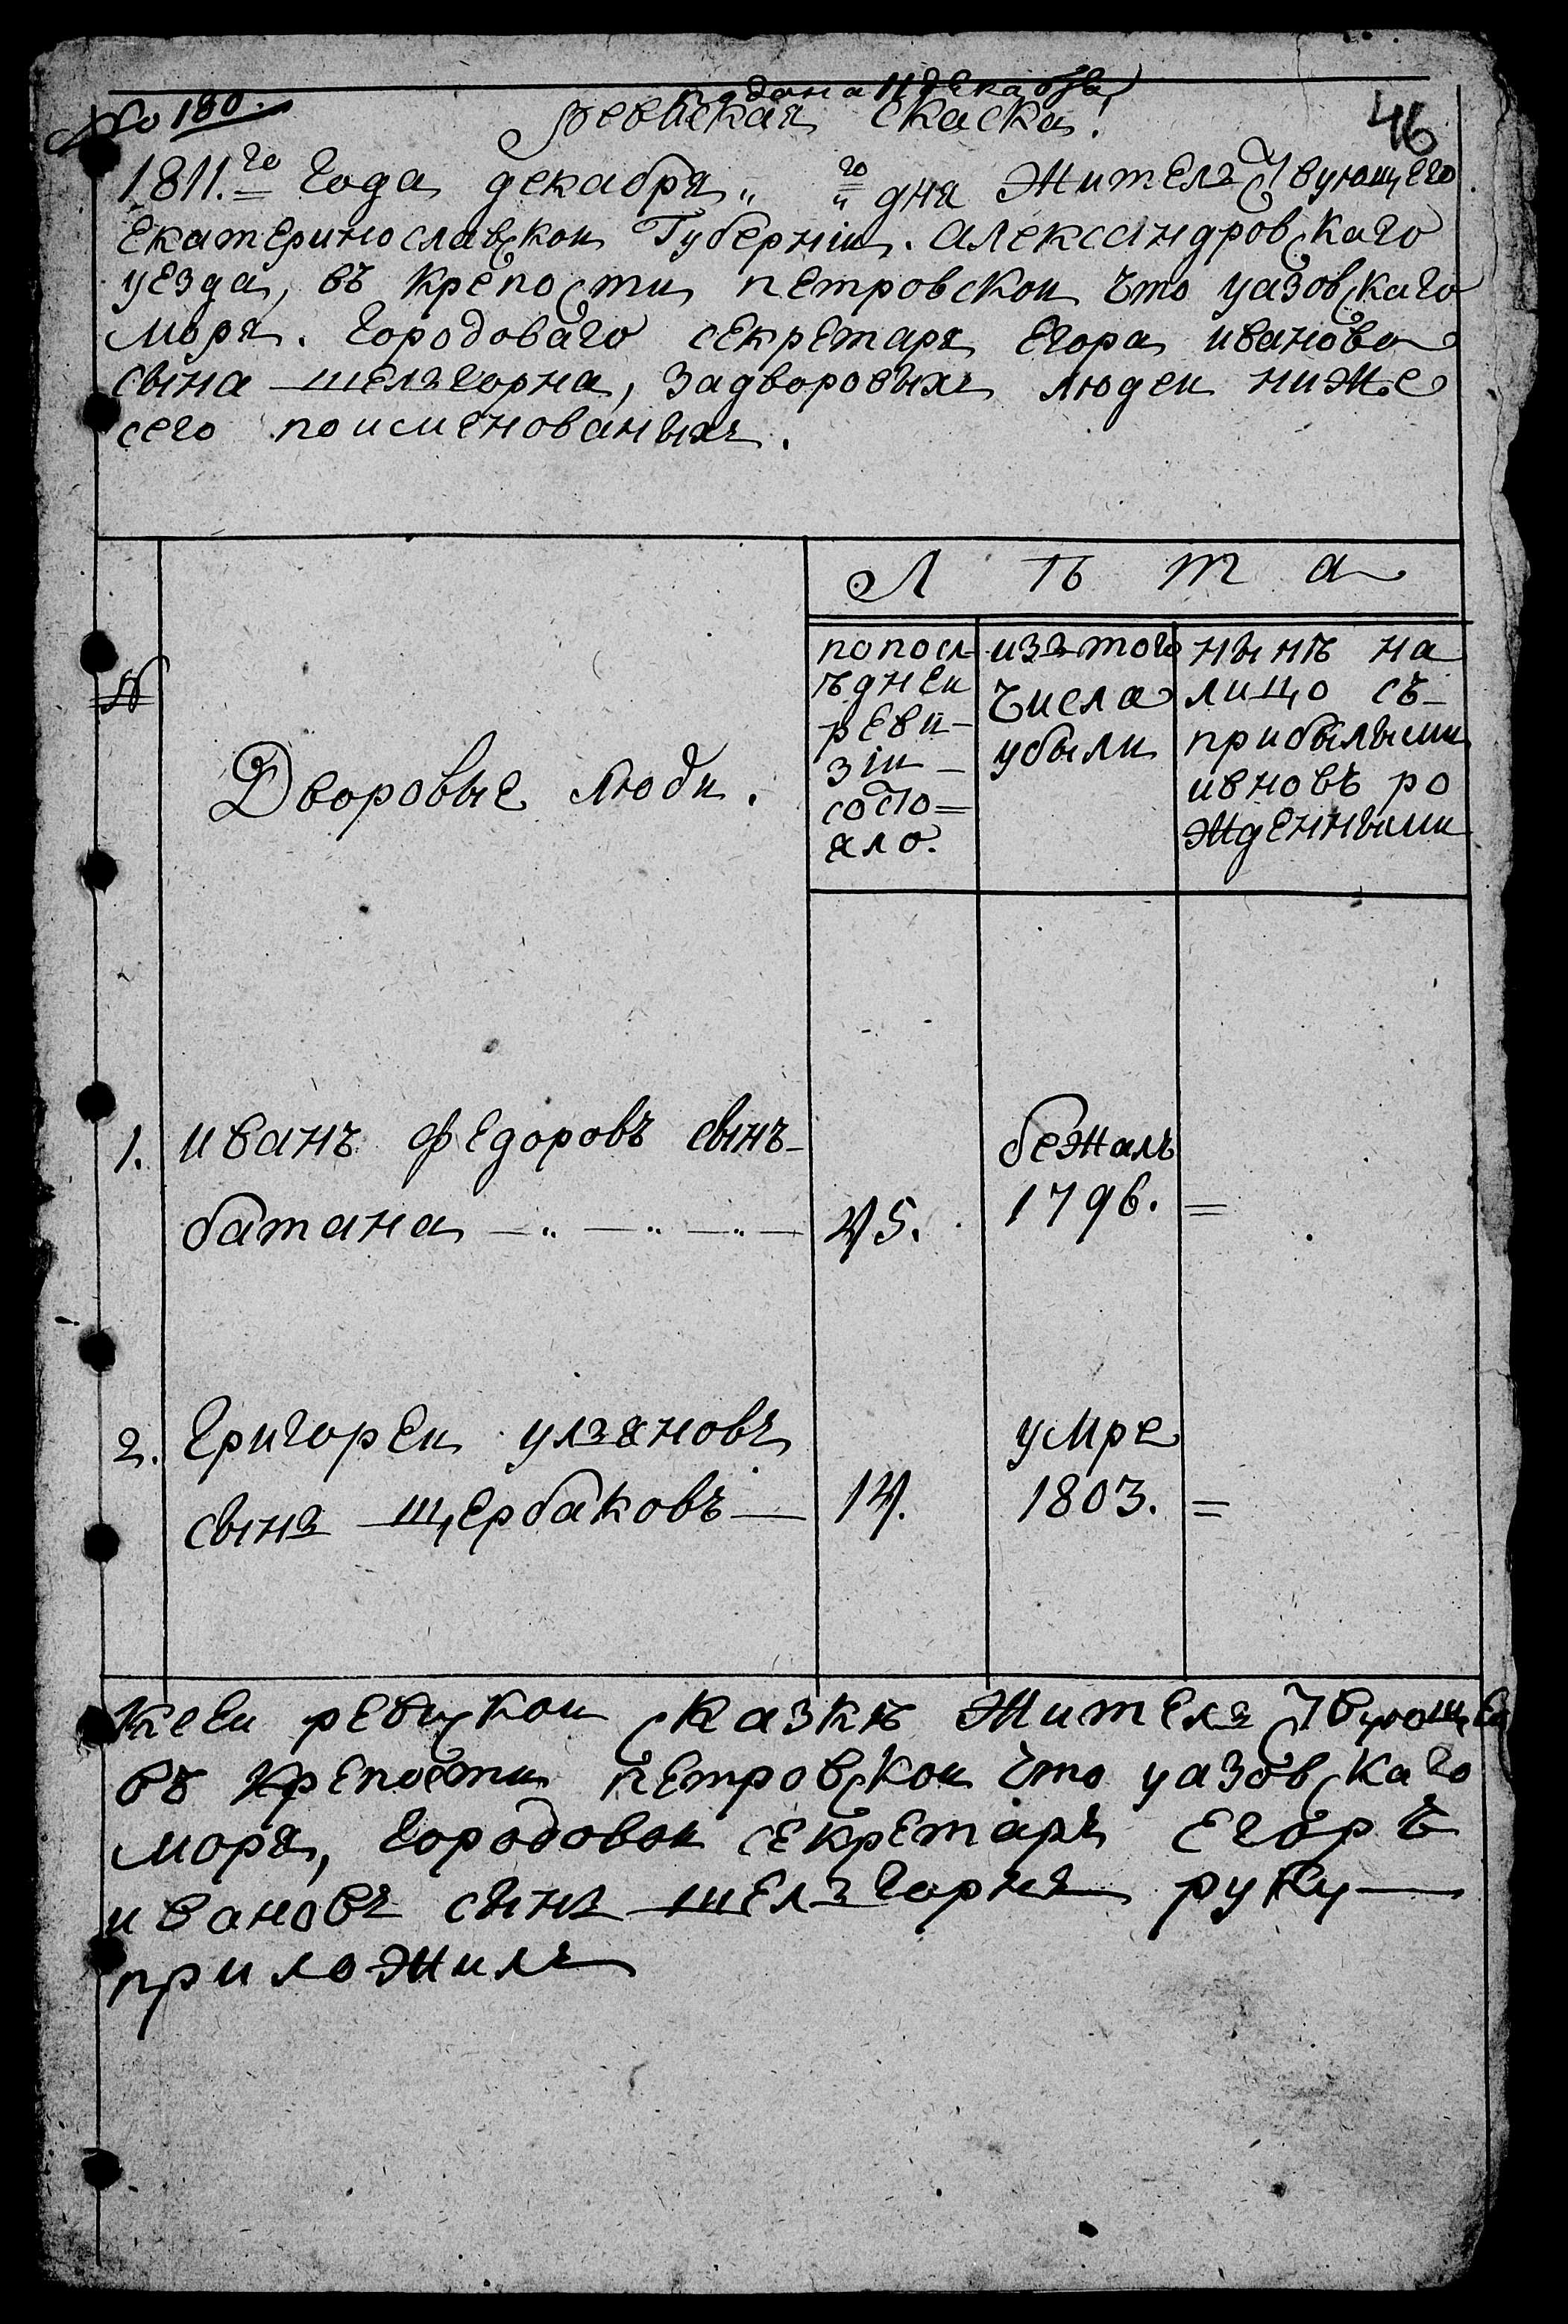 подана 11 декабря
№ 180.
ревиская скаска.
46
1811.го года декабря „ „го дня жительствующего
екатеринославскои Губерніи. александровскаго
уезда, въ крепости петровскои что уазовскаго
моря. городоваго секретаря егора иванова
сына шельгорна, задворовыхъ людеи ниже
сего поименованыхъ.
Л ѣ т а
№
Дворовые люди.
по посл
ѣднеи
реви-
зіи -
состо=
яло.
изъ того
числа
убыли
нынѣ на
лицо съ-
прибылыми
ивновь ро
жденными
1. иванъ федоровъ сынъ-
бежалъ
батана — „ — „ — „ — 45. 1796. =
2. григореи ульяновъ
умре
сынъ щербаковъ — 14. 1803. =
Ксеи ревискои сказкѣ жительствующеи
въ крепости петровскои что уазовскаго
моря, городовои секретарь егоръ
ивановъ сынъ шельгорнъ руку —
приложилъ